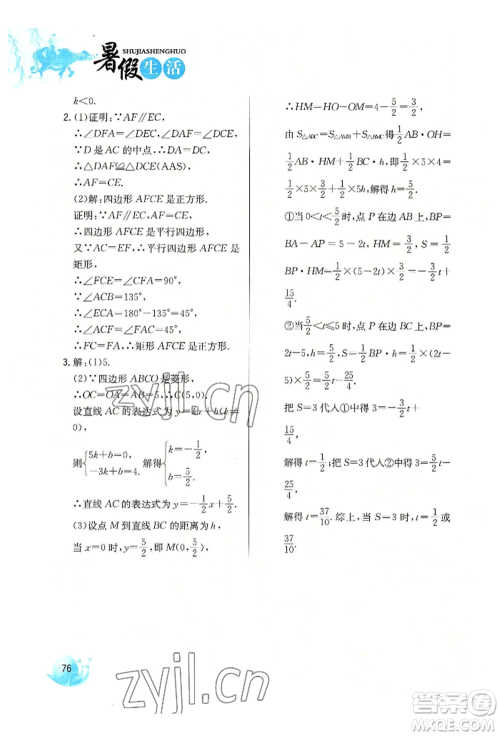 SHUJIASHENGHUO
暑假生活
k<0.
2.(1)证明:∵AF∥EC,
∴∠DFA=∠DEC,∠DAF=∠DCE,
∵D是AC的中点,∴DA=DC,
∴△DAF≌△DCE(AAS),
∴AF=CE.
(2)解:四边形AFCE是正方形.
证明:∵AF∥EC,AF=CE,
∴四边形AFCE是平行四边形,
又∵AC=EF,∴平行四边形AFCE是
矩形,
∴∠FCE=∠CFA=90°,
∵∠ACB=135°,
∴∠ECA=180°-135°=45°,
∴∠FCA=90°-45°=45°,
∴FC=FA,∴矩形AFCE是正方形.
3.解:(1)5.
(2)∵四边形ABCO是菱形,
∴OC=OA=AB=5,∴C(5,0).
设直线AC的表达式为y=kx+b(k≠
0),
则{5k+b=0, -3k+b=4. 解得{k=-1/2, b=5/2.
∴直线AC的表达式为y=-1/2x+5/2.
(3)设点M到直线BC的距离为h,
当x=0时,y=5/2,即M(0,5/2),
∴HM=HO-OM=4-5/2=3/2,
由S△ABC=S△AMB+S△BMC=1/2AB·OH=
1/2AB·HM+1/2BC·h,即1/2×5×4=
1/2×5×3/2+1/2×5h,解得h=5/2.
①当0<t<5/2时,点P在边AB上,BP=
BA-AP=5-2t,S=1/2BP·HM=
1/2×(5-2t)×3/2=-3/2t+
15/4.
②当5/2<t≤5时,点P在边BC上,BP=
2t-5,则S=1/2BP·h=1/2×(2t-5)
×5/2=5/2t-25/4.
把S=3代入①中得3=-3/2t+
15/4,
解得t=1/2.把S=3代入②中得3=
5/2t-25/4,
解得t=37/10.综上,当S=3时,t=1/2或
37/10.
76
zyjl.cn
zyjl.cn
作业精灵